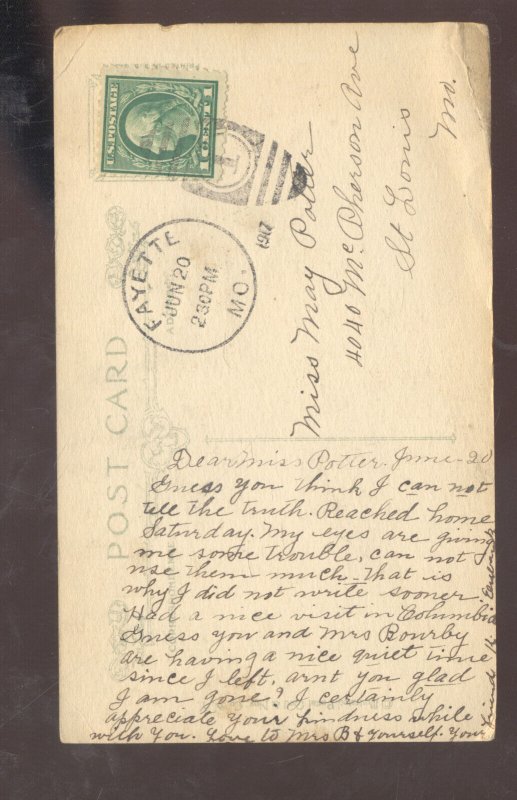 U.S. POSTAGE
1 CENT 1
FAYETTE
JUN 20
230PM
MO.
1917
POST CARD
Miss May Potter
4040 McPherson Ave
St Louis
Mo.
Dear Miss Potter. June-20
Guess you think I can not
tell the truth. Reached home
Saturday. My eyes are giving
me some trouble, can not
use them much - that is
why I did not write sooner.
Had a nice visit in Columbia
Guess you and Mrs Bourby
are having a nice quiet time
since I left, arnt you glad
I am gone? I certainly
appreciate your kindness while
with you. Love to Mrs B & yourself. Your
friend